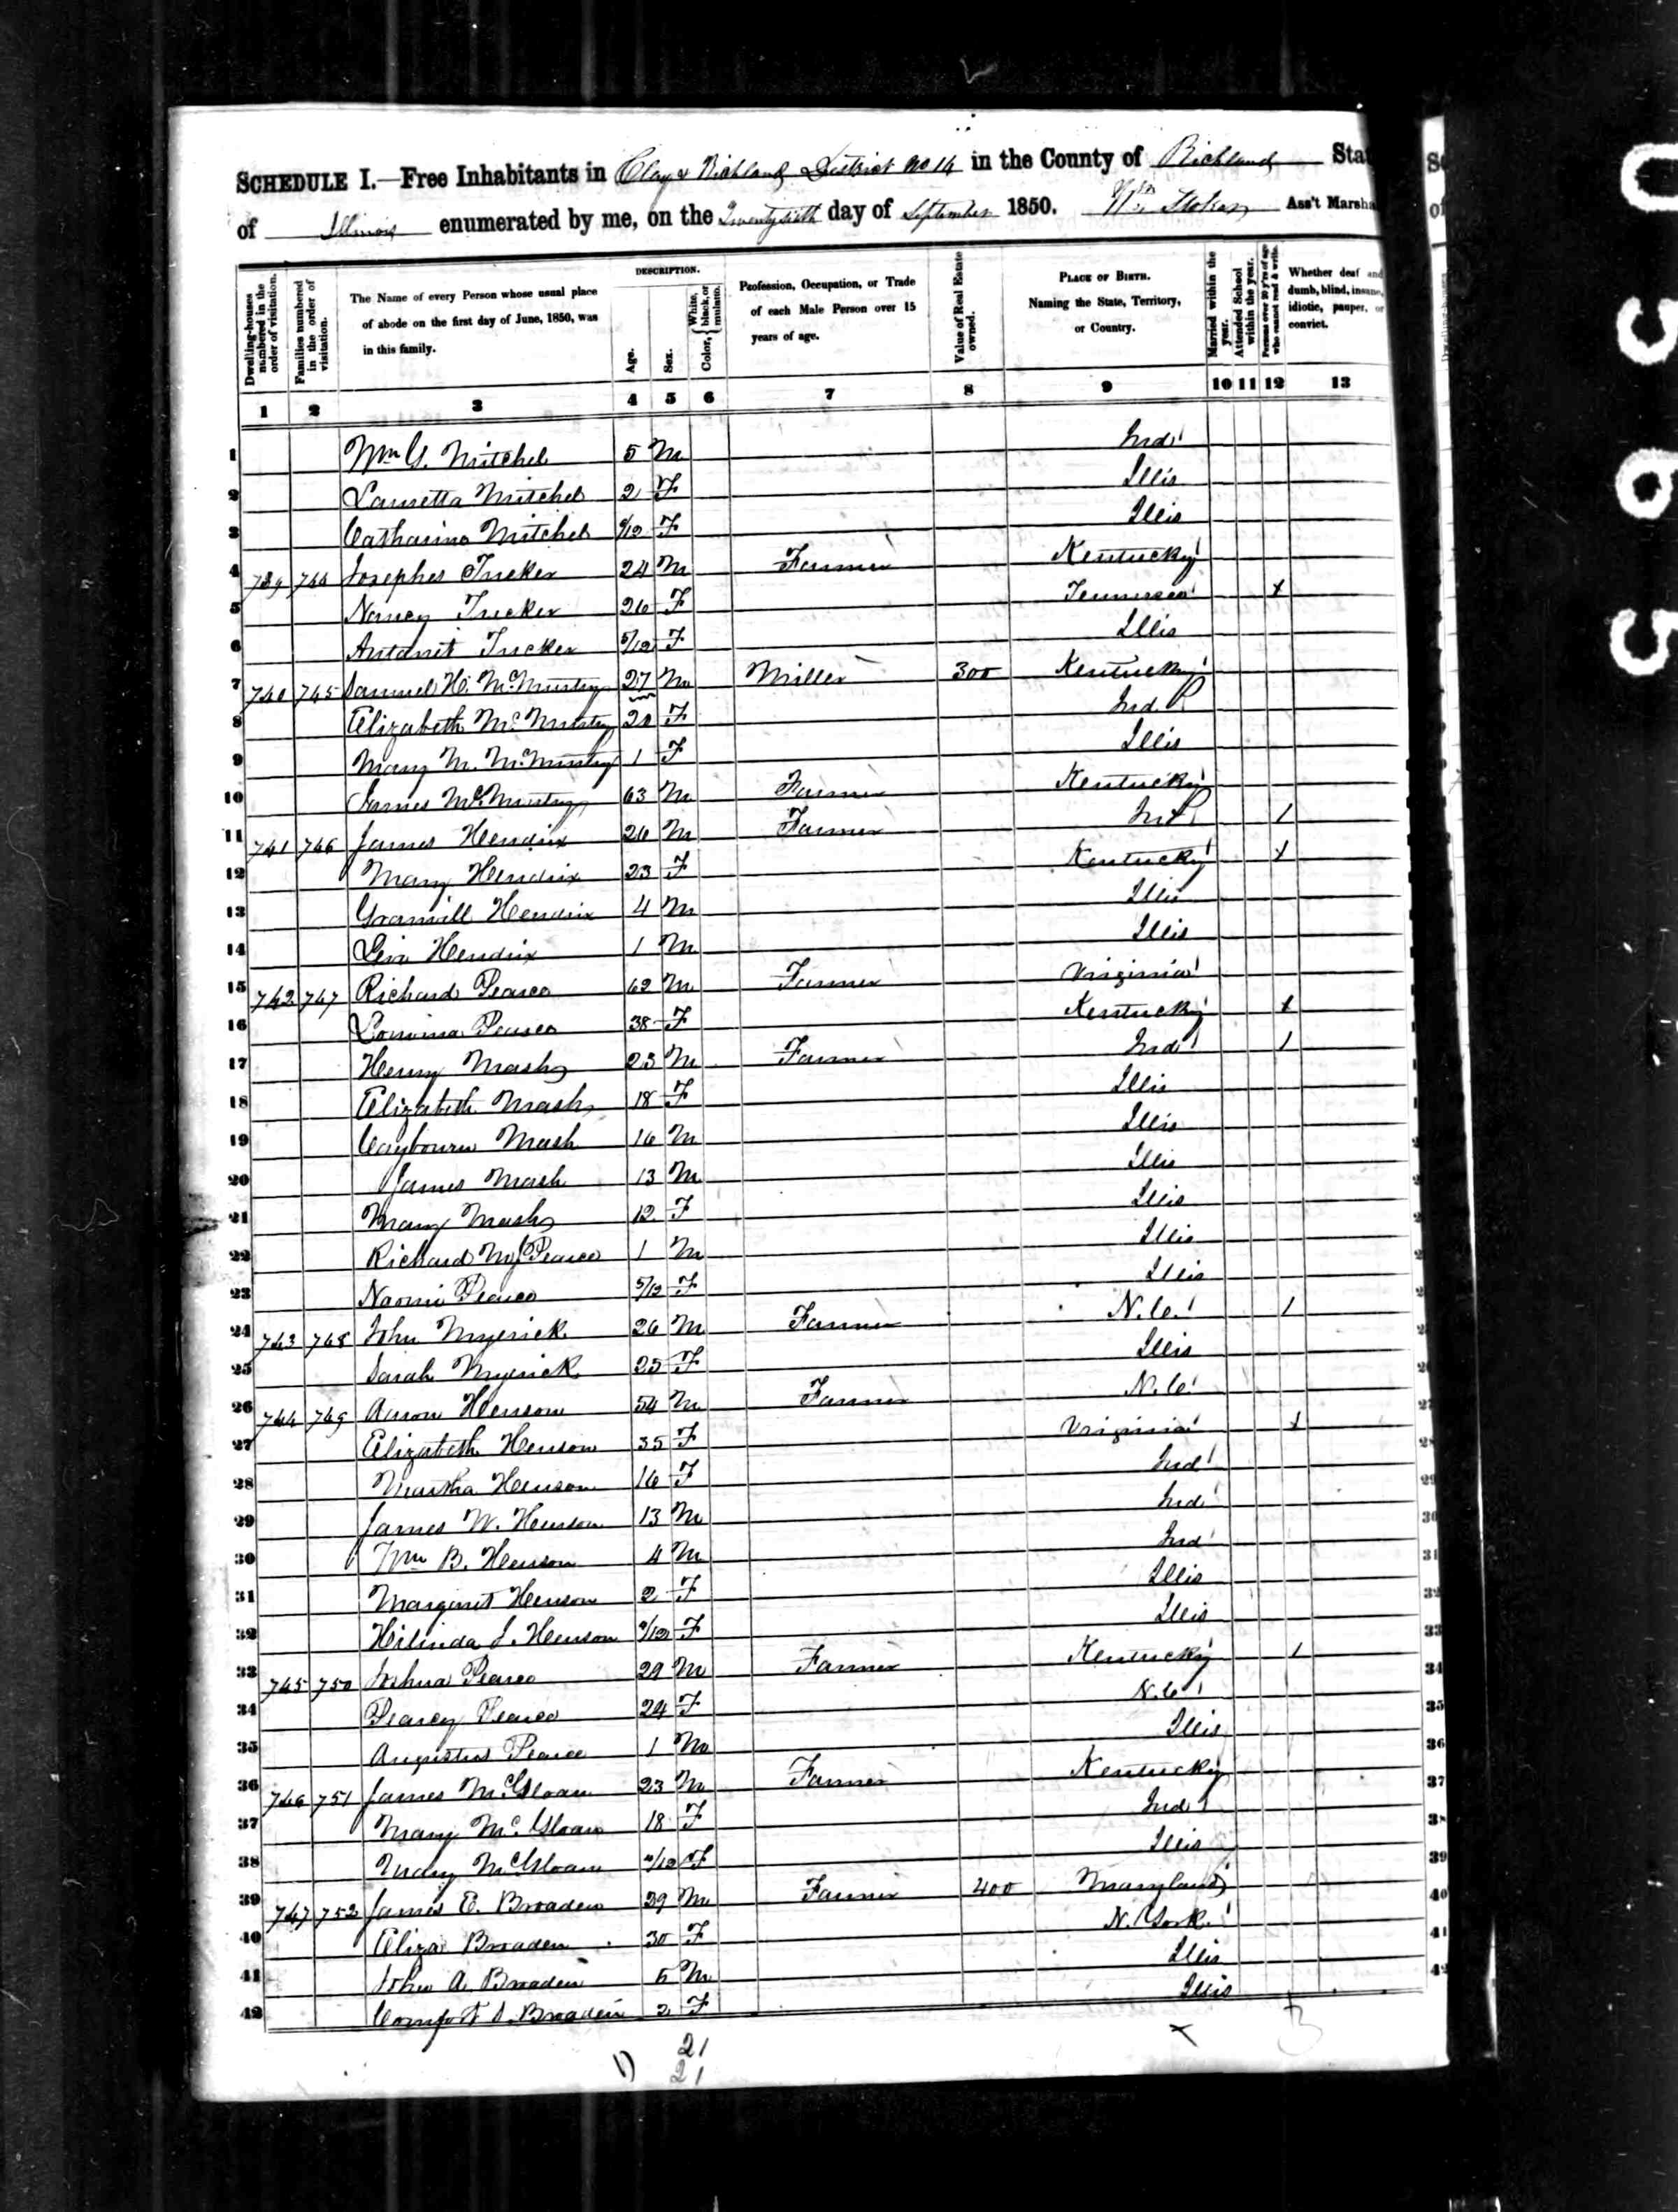 SCHEDULE I.—Free Inhabitants in Clay & Richland District No 14 in the County of Richland Stat
of Illinois enumerated by me, on the Twentysixth day of September 1850. Wm Stokes Ass't Marsha
Dwelling-houses numbered in the order of visitation.
Families numbered in the order of visitation.
The Name of every Person whose usual place of abode on the first day of June, 1850, was in this family.
DESCRIPTION.
Age.
Sex.
Color, { White, black, or mulatto.
Profession, Occupation, or Trade of each Male Person over 15 years of age.
Value of Real Estate owned.
PLACE OF BIRTH. Naming the State, Territory, or Country.
Married within the year.
Attended School within the year.
Persons over 20 y'rs of age who cannot read & write.
Whether deaf and dumb, blind, insane, idiotic, pauper, or convict.
1 2 3 4 5 6 7 8 9 10 11 12 13
1 Wm G. Mitchel 5 M Ind
2 Lauretta Mitchel 2 F Illis
3 Catharine Mitchel /12 F Illis
4 739 744 Josephes Tucker 24 M Farmer Kentucky
5 Nancy Tucker 26 F Tennessee X
6 Antanit Tucker 5/12 F Illis
7 740 745 Samuel H. McMurtry 27 M Miller 300 Kentucky
8 Elizabeth McMurtry 20 F Ind
9 Mary M. McMurtry 1 F Illis
10 James McMurtry 63 M Farmer Kentucky
11 741 746 James Hendrix 26 M Farmer Ind /
12 Mary Hendrix 23 F Kentucky X
13 Granvill Hendrix 4 M Illis
14 Levi Hendrix 1 M Illis
15 742 747 Richard Pearce 62 M Farmer Virginia
16 Pearce 38 F Kentucky X
17 Henry Mash 23 M Farmer Ind /
18 Elizabeth Mash 18 F Illis
19 Claybourn Mash 16 M Illis
20 James Mash 13 M Illis
21 Mary Mash 12 F Illis
22 Richard M Pearce 1 M Illis
23 Naomi Pearce 5/12 F Illis
24 743 748 John Myrick 26 M Farmer N.C. /
25 Sarah Myrick 25 F Illis
26 744 749 Aaron Henson 54 M Farmer N.C.
27 Elizabeth Henson 35 F Virginia X
28 Martha Henson 16 F Ind
29 James W. Henson 13 M Ind
30 Wm B. Henson 4 M Ind
31 Margaret Henson 2 F Illis
32 Hilinda J. Henson /12 F Illis
33 745 750 Joshua Pearce 29 M Farmer Kentucky /
34 Pearcy Pearce 24 F N.C.
35 Augustus Pearce 1 M Illis
36 746 751 James McGloan 23 M Farmer Kentucky
37 Mary McGloan 18 F Ind
38 Mary McGloan /12 F Illis
39 747 752 James E. Broaden 39 M Farmer 400 Maryland
40 Eliza Broaden 30 F N. York
41 John A. Broaden 5 M Illis
42 Comfort A. Broaden 2 F Illis
21
21